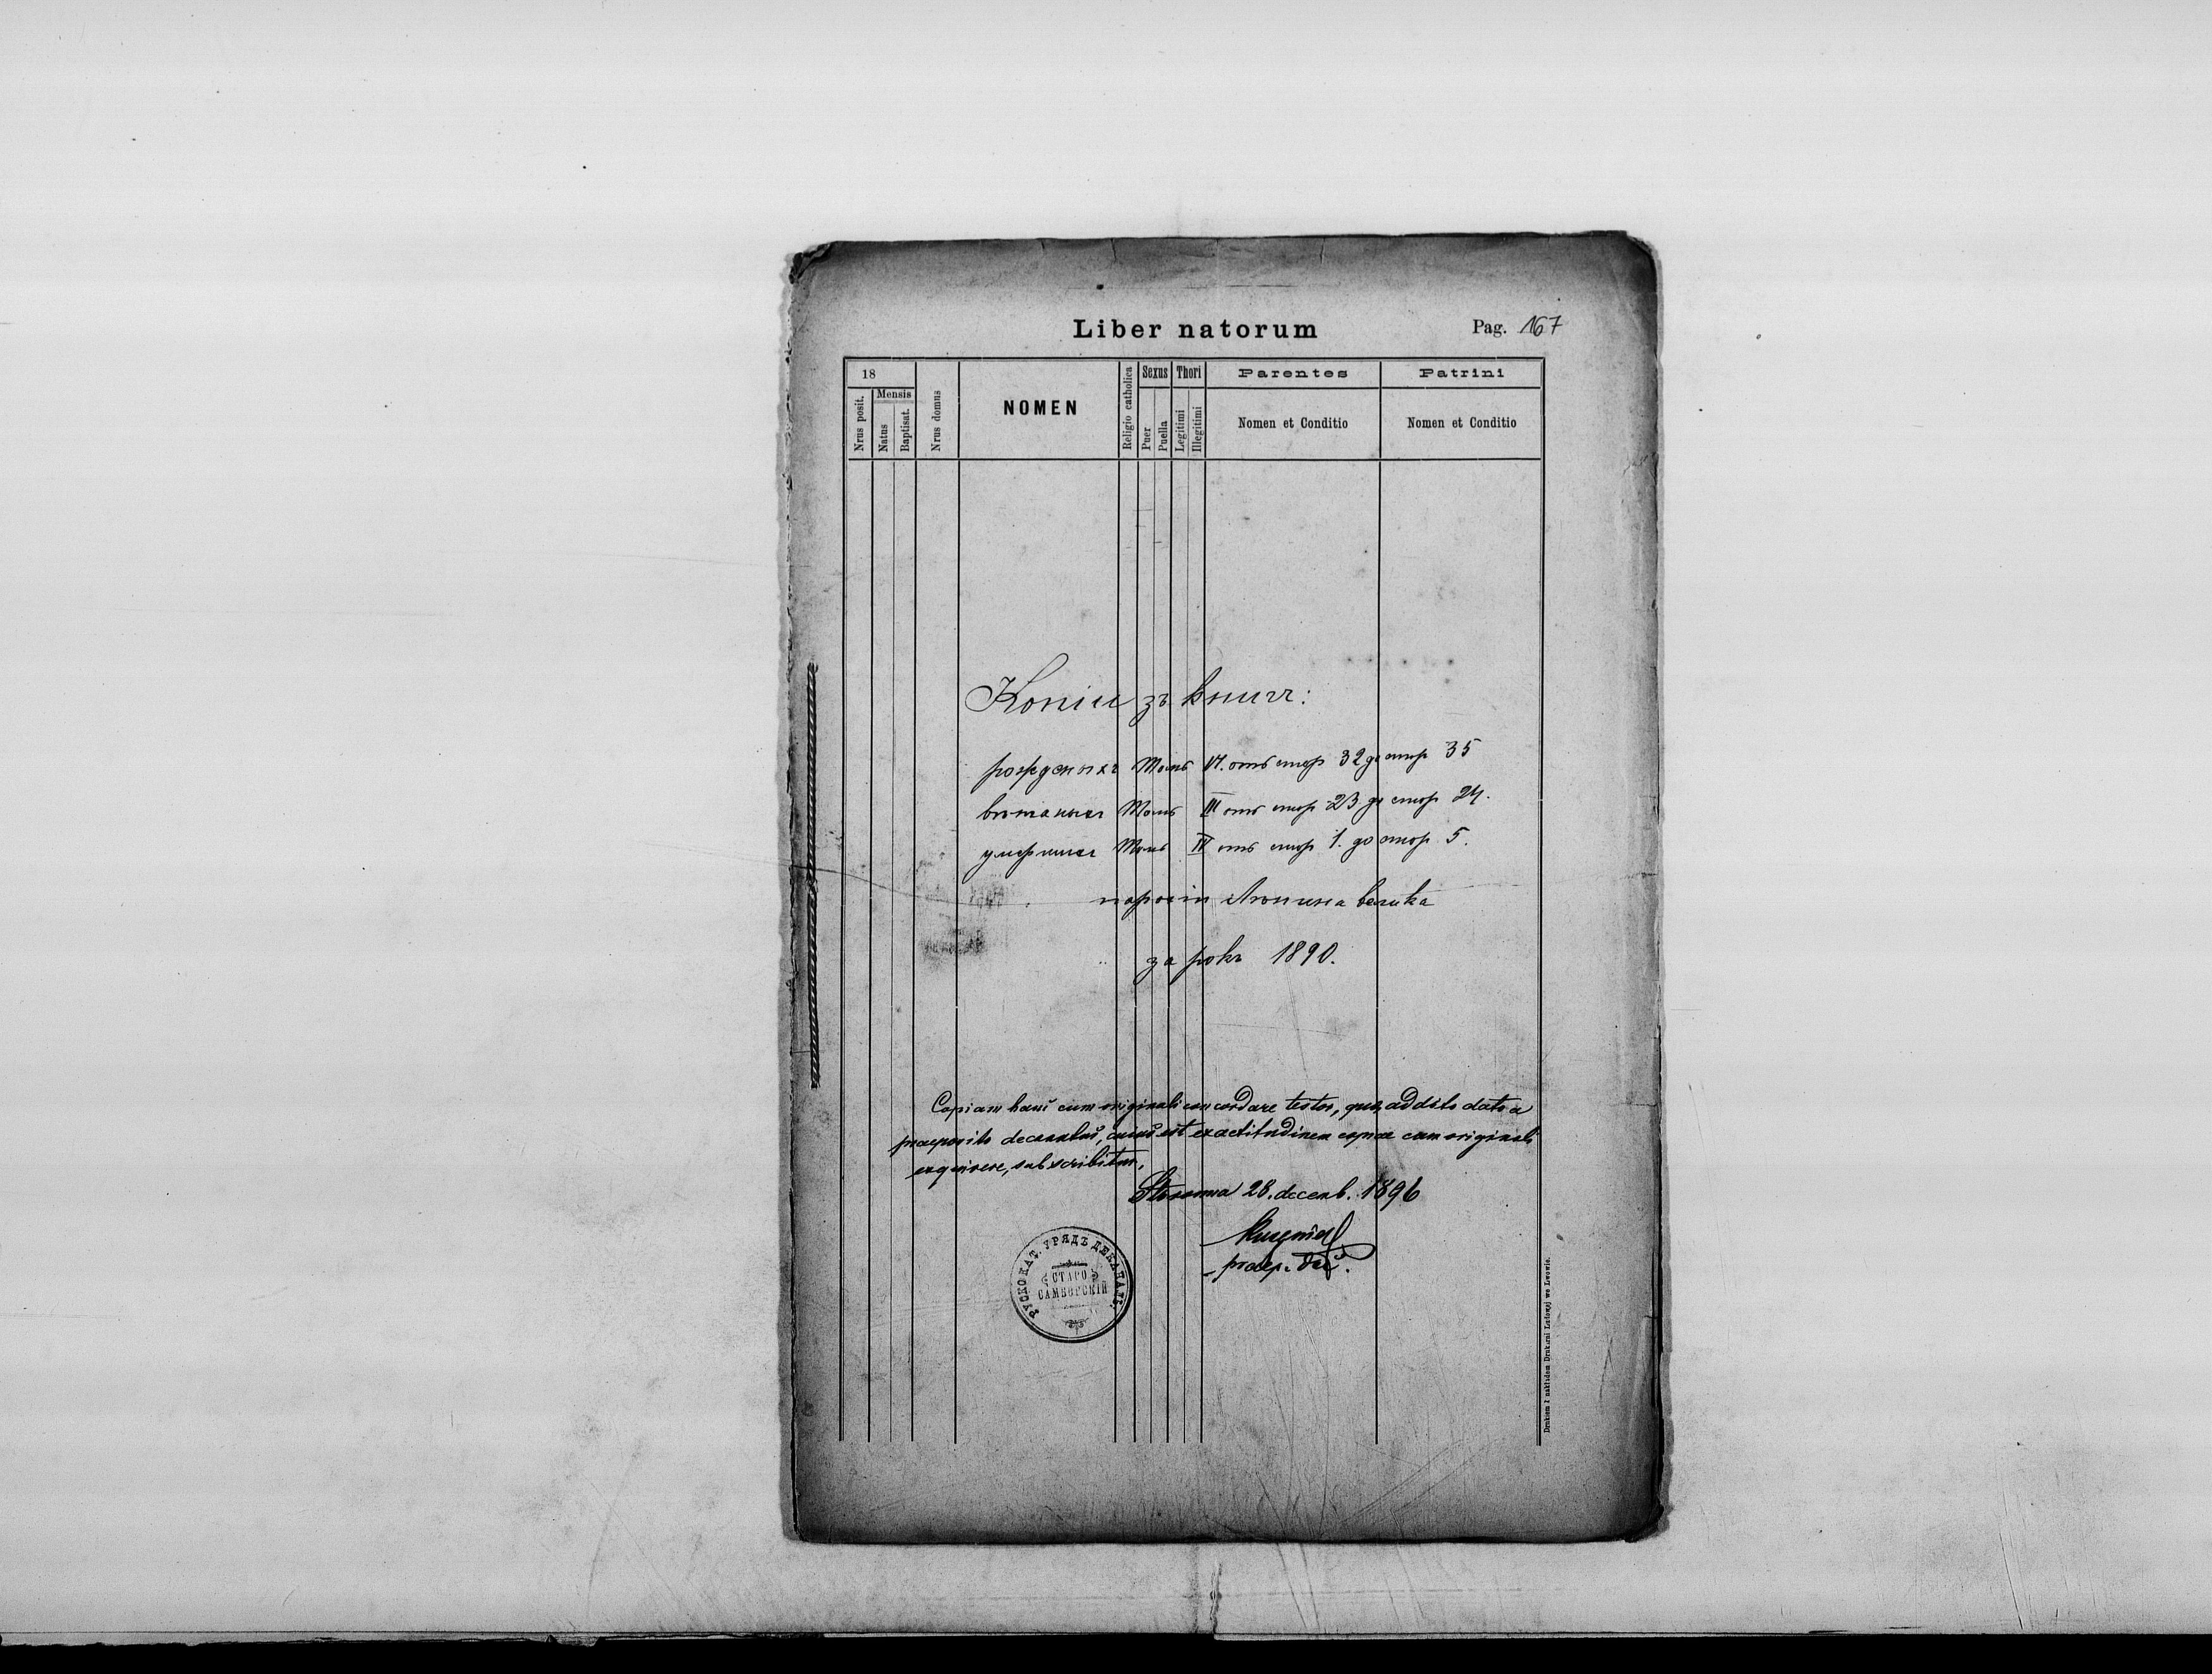 Liber natorum
Pag. 167
18
Nrus posit.
Mensis
Natus
Baptisat.
Nrus domus
NOMEN
Religio catholica
Sexus
Puer
Puella
Thori
Legitimi
Illegitimi
Parentes
Nomen et Conditio
Patrini
Nomen et Conditio
Копіи зъ книгъ:
рожденыхъ Томъ VI. отъ стор 32 до стор 35
вѣнчаныхъ Томъ III отъ стор 23 до стор 24.
умершихъ Томъ IV отъ стор 1. до стор 5.
парохіи Лѣнина велика
за рокъ 1890.
Copiam hanc cum originali concordare testor, quo addito dato a
praeposito decanatus, cuius est exactitudinem copiae cum originali
exquirere, subscribitur.
28. decemb. 1896
praep. dec.
РУСКО КАТ. УРЯДЪ ДЕКАНАЛ.
СТАРО
САМБОРСКІЙ
Drukiem i nakładem Drukarni Ludowej we Lwowie.